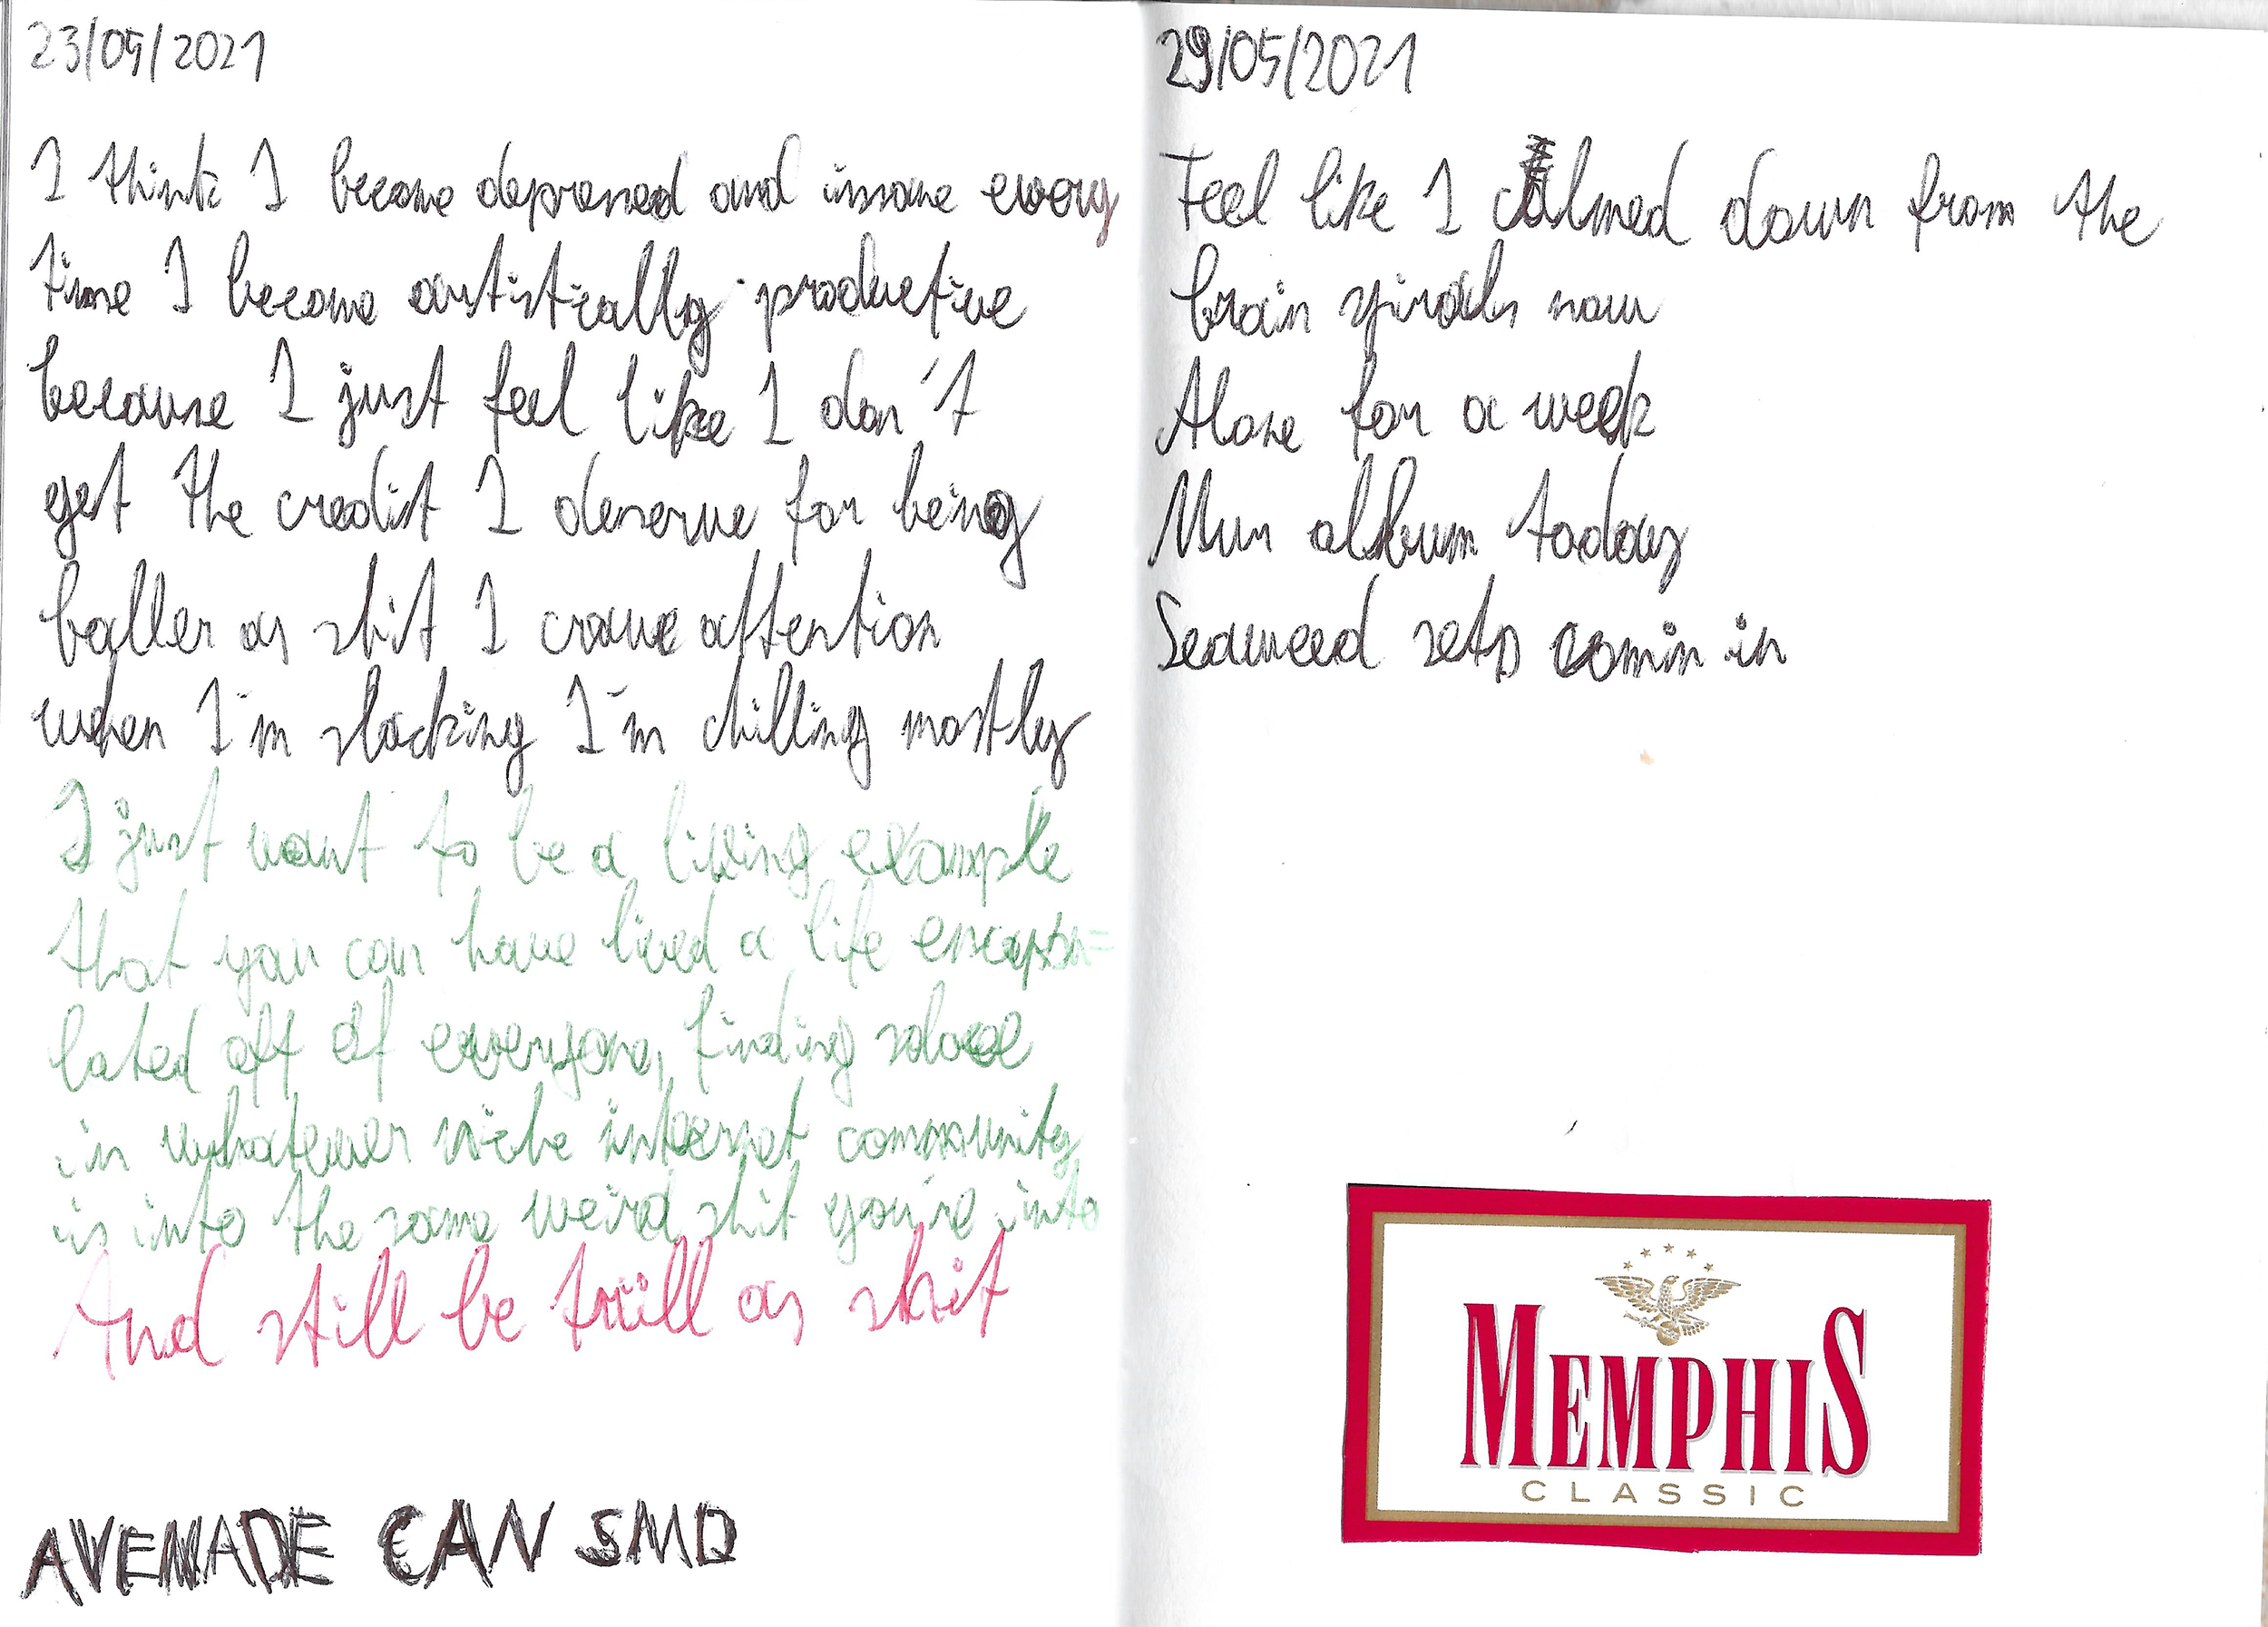 23/05/2021
I think I become depressed and insane every
time I become artistically productive
because I just feel like I don't
get the credit I deserve for being
baller as shit I crave attention
when I'm slacking I'm chilling mostly
I just want to be a living example
that you can have lived a life encapsu=
lated off of everyone, finding solace
in whatever niche internet community
is into the same weird shit you're into
And still be trill as shit
AVENADE CAN SMD
29/05/2021
Feel like I calmed down from the
brain spirals now
Alone for a week
album today
Seaweed sets comin in
MEMPHIS
CLASSIC